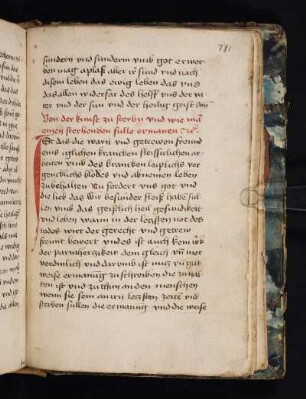 sundern vnd sunderin vmb got erwer
ben mag aplaß aller ir sund vnd nach
disem leben das ewig leben das vns
das allen widerfar des helff vns der va
ter vnd der sun vnd der heilig geist Am
Von der kunst zu sterben vnd wie man
einen sterbenden sulle ermanen
das die warn vnd getrewen freund
eins iglichen krancken fleissiclichen ar
beiten vmb des krancken leiplichs ver
gencklichs blodes vnd abnemen leben
zubehalten So fordert vns got vnd
die lieb das wir besunder fleiß habe sul
len vmb das geistlich heil gesuntheit
vnd leben wann in der letzsten not des
todes wirt der gerecht vnd getrew
freunt bewert vnd es ist auch kein werck
der parmherczikeit dem gleich vnd not
verdinlich vnd darvmb ist nucz vnd gut
weise ermanung zu schreiben die zuhal
ten ist vnd zu thun an den menschen
wenn sie sein an irn letzsten zeite vnd
sterben sullen die ermanung vnd die weise